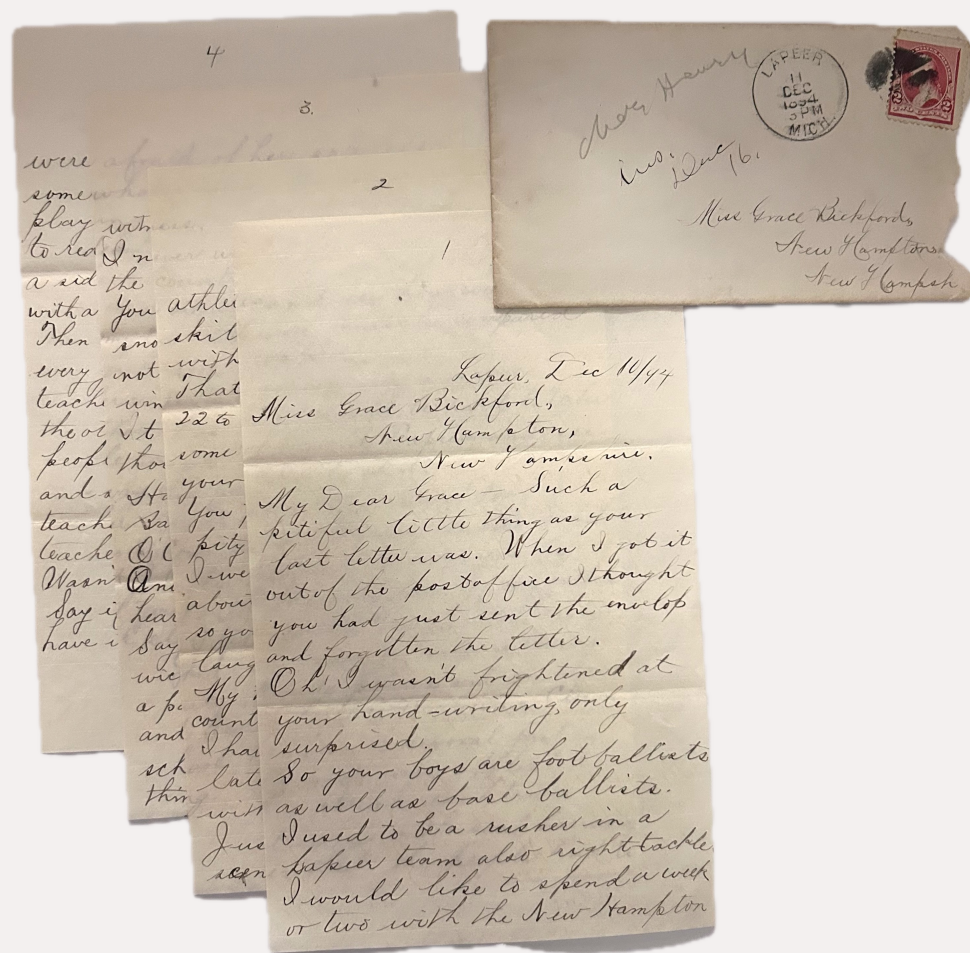 4
were
some
play
to rea
a sid
with a
Then
every
teache
the ot
peopl
and a
teach
teache
Wasn'
Say if
have i
3.
with
In
the
You
sno
not
win
It
thou
Ha
Ba
O'l
And
hear
Say
wic
a pa
and
sch
thin
2
athle
skil
with
That
22 to
some
your
You
pity
I we
about
so yo
laug
My
count
I hav
late
with
Jus
seen
1
Lapeer, Dec 10/94
Miss Grace Bickford,
New Hampton,
New Hampshire.
My Dear Grace – Such a
pitiful little thing as your
last letter was. When I got it
out of the postoffice I thought
you had just sent the envelop
and forgotten the letter.
Oh! I wasn't frightened at
your hand-writing, only
surprised.
So your boys are foot ballists
as well as base ballists.
I used to be a rusher in a
Lapeer team also right tackle.
I would like to spend a week
or two with the New Hampton
LAPEER
11
DEC
1894
3 PM
MICH.
Henry
ins.
Dec 16.
Miss Grace Bickford,
New Hampton,
New Hampsh
2 2